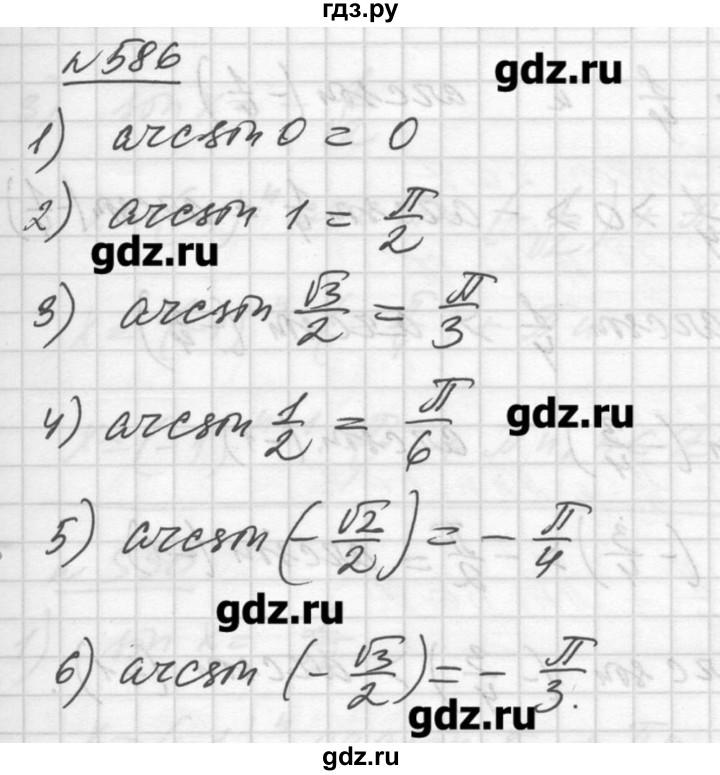 гдз.ру
№586
gdz.ru
1) arcsin 0 = 0
2) arcsin 1 = π/2
gdz.ru
3) arcsin √3/2 = π/3
4) arcsin 1/2 = π/6
gdz.ru
5) arcsin (-√2/2) = - π/4
gdz.ru
6) arcsin (-√3/2) = - π/3.
gdz.ru
gdz.ru